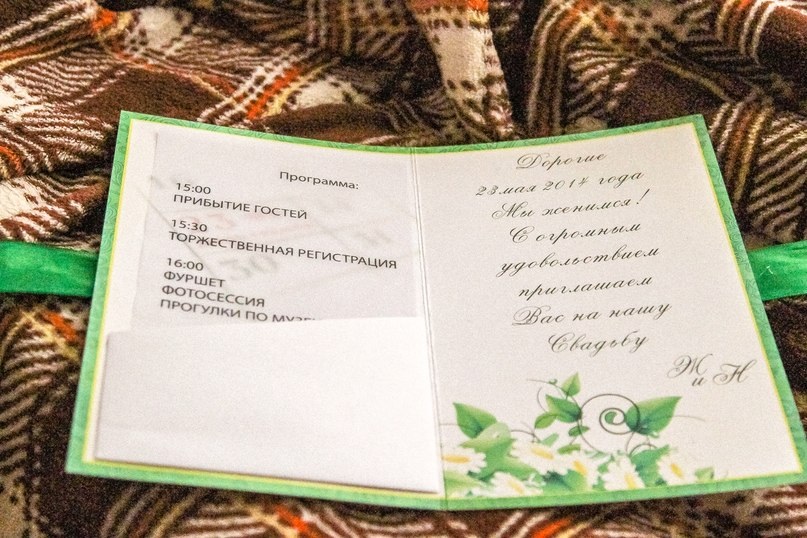 Программа:
15:00
ПРИБЫТИЕ ГОСТЕЙ
15:30
ТОРЖЕСТВЕННАЯ РЕГИСТРАЦИЯ
16:00
ФУРШЕТ
ФОТОСЕССИЯ
ПРОГУЛКИ ПО
Дорогие
23 мая 2014 года
Мы женимся!
С огромным
удовольствием
приглашаем
Вас на нашу
Свадьбу
Ж
и Н